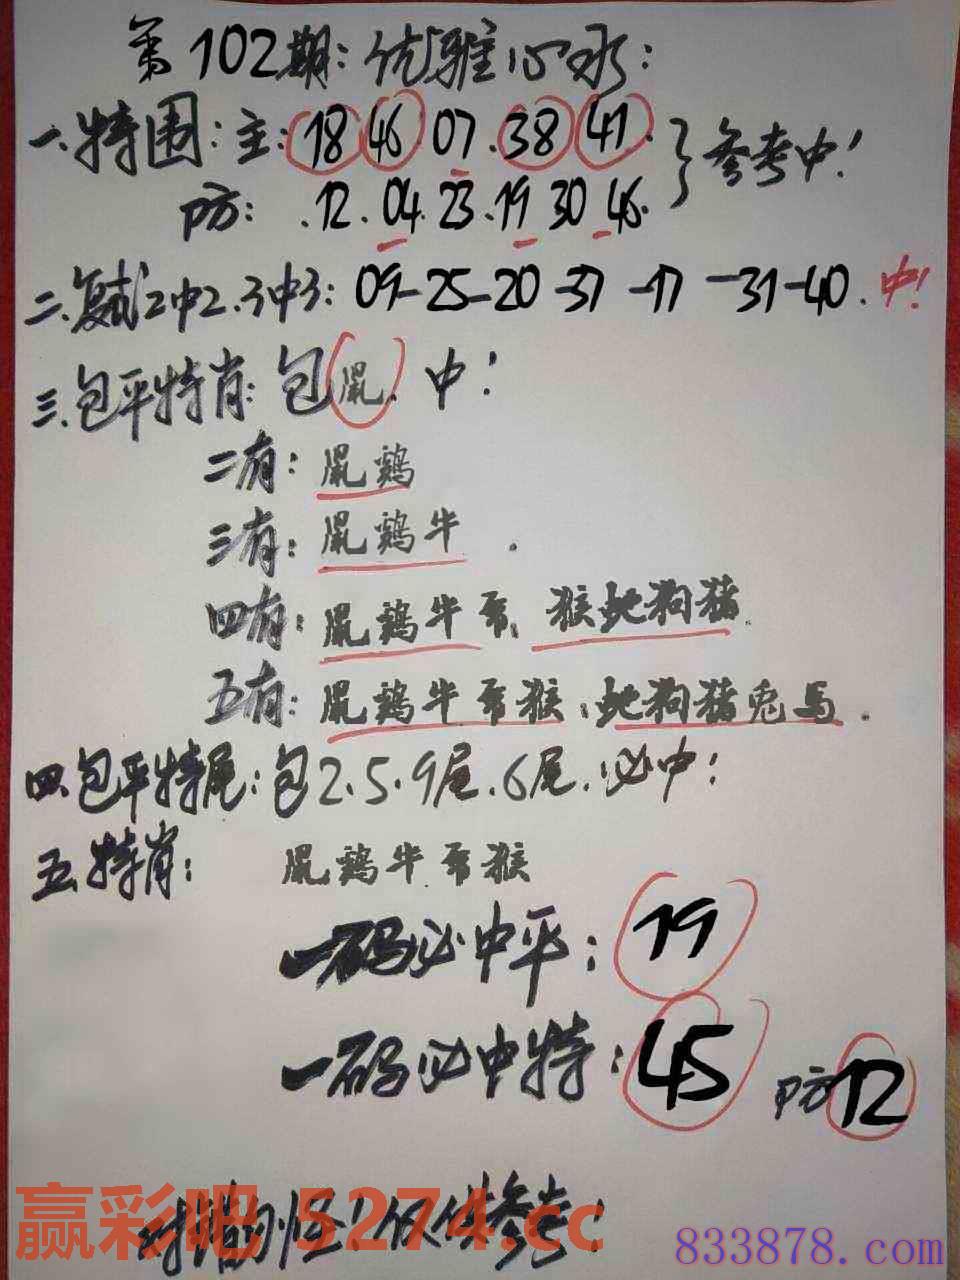 第102期:优雅心水:
一.特围:主:18 46.07.38 41.
防:.12.04.23.19 30 46.
}参考中!
二.复试2中2.3中3:09-25-20-37-17-31-40.中!
三.包平特肖:包鼠.中!
二有:鼠鸡
三有:鼠鸡牛.
四有:鼠鸡牛羊、猴蛇狗猪.
五有:鼠鸡牛羊猴:蛇狗猪兔马.
四.包平特尾:包2.5.9尾.6尾.必中!
五.特肖:鼠鸡牛.羊猴
一码必中平:19
一码必中特:45 防12
对错勿怪!仅供参考!
赢彩吧 5274.cc
833878.com